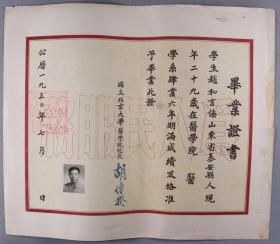 畢業證書
學生趙和言係山東省泰安縣人現
年二十九歲在醫學院 醫
學系肄業六年期滿成績及格准
予畢業此證
國立北京大學醫學院院長 胡傳揆
公曆一九五〇年七月 日